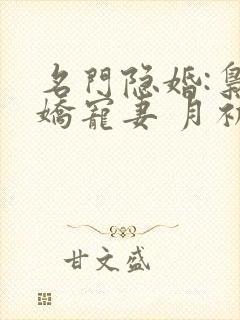 名門隐婚:梟
嬌寵妻 月初
甘文盛